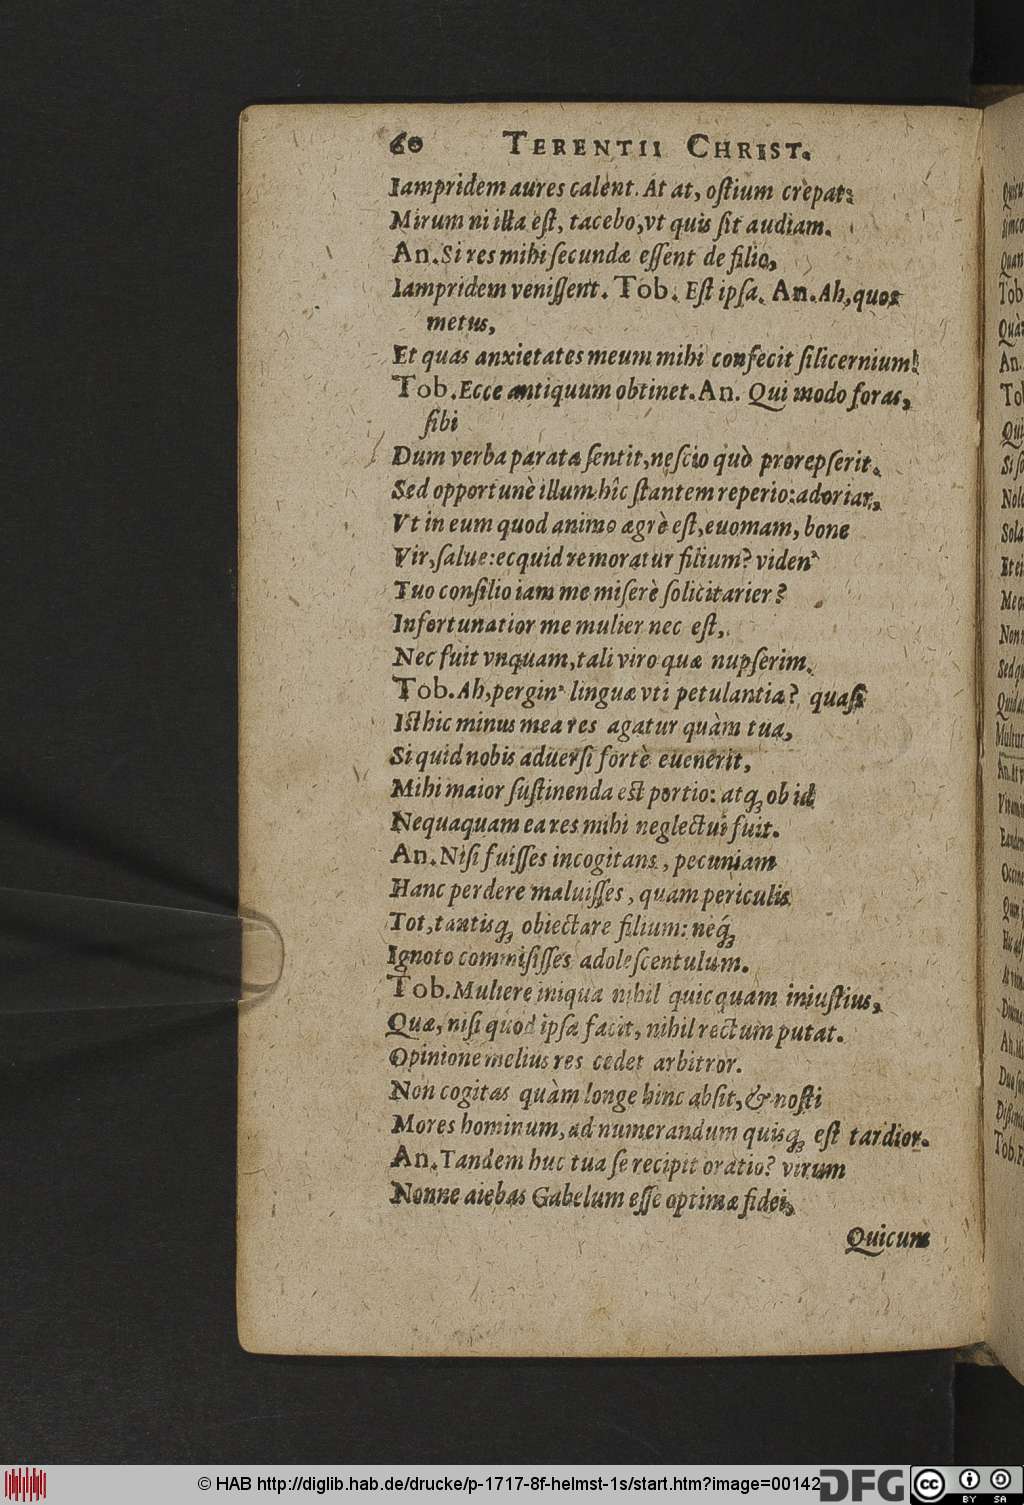 60 TERENTII CHRIST.
Iampridem aures calent. At at, oſtium crepat:
Mirum ni illa eſt, tacebo, vt quis ſit audiam.
An. Si res mihi ſecundæ eſſent de filio,
Iampridem veniſſent. Tob. Eſt ipſa. An. Ah, quos
metus,
Et quas anxietates meum mihi confecit ſilicernium!
Tob. Ecce antiquum obtinet. An. Qui modo foras,
ſibi
Dum verba parata ſentit, neſcio quò prorepſerit.
Sed opportunè illum hîc ſtantem reperio: adoriar,
Vt in eum quod animo ægrè eſt, euomam, bone
Vir, ſalue: ecquid remoratur filium? viden'
Tuo conſilio iam me miſerè ſolicitarier?
Infortunatior me mulier nec eſt,
Nec fuit vnquam, tali viro quæ nupſerim.
Tob. Ah, pergin' linguæ vti petulantia? quaſi
Iſthic minus mea res agatur quàm tua,
Si quid nobis aduerſi fortè euenerit,
Mihi maior ſuſtinenda eſt portio: atq; ob id
Nequaquam ea res mihi neglectui fuit.
An. Niſi fuiſſes incogitans, pecuniam
Hanc perdere maluiſſes, quam periculis
Tot, tantisq; obiectare filium: neq́;
Ignoto commiſiſſes adoleſcentulum.
Tob. Muliere iniqua nihil quicquam iniuſtius,
Quæ, niſi quod ipſa facit, nihil rectum putat.
Opinione melius res cedet arbitror.
Non cogitas quàm longe hinc abſit, & noſti
Mores hominum, ad numerandum quisq; eſt tardior.
An. Tandem huc tua ſe recipit oratio? virum
Nonne aiebas Gabelum eſſe optimæ fidei,
Quicum
Tob
An.
Tob
Qui
Sola
Non
© HAB http://diglib.hab.de/drucke/p-1717-8f-helmst-1s/start.htm?image=00142
DFG
cc BY SA